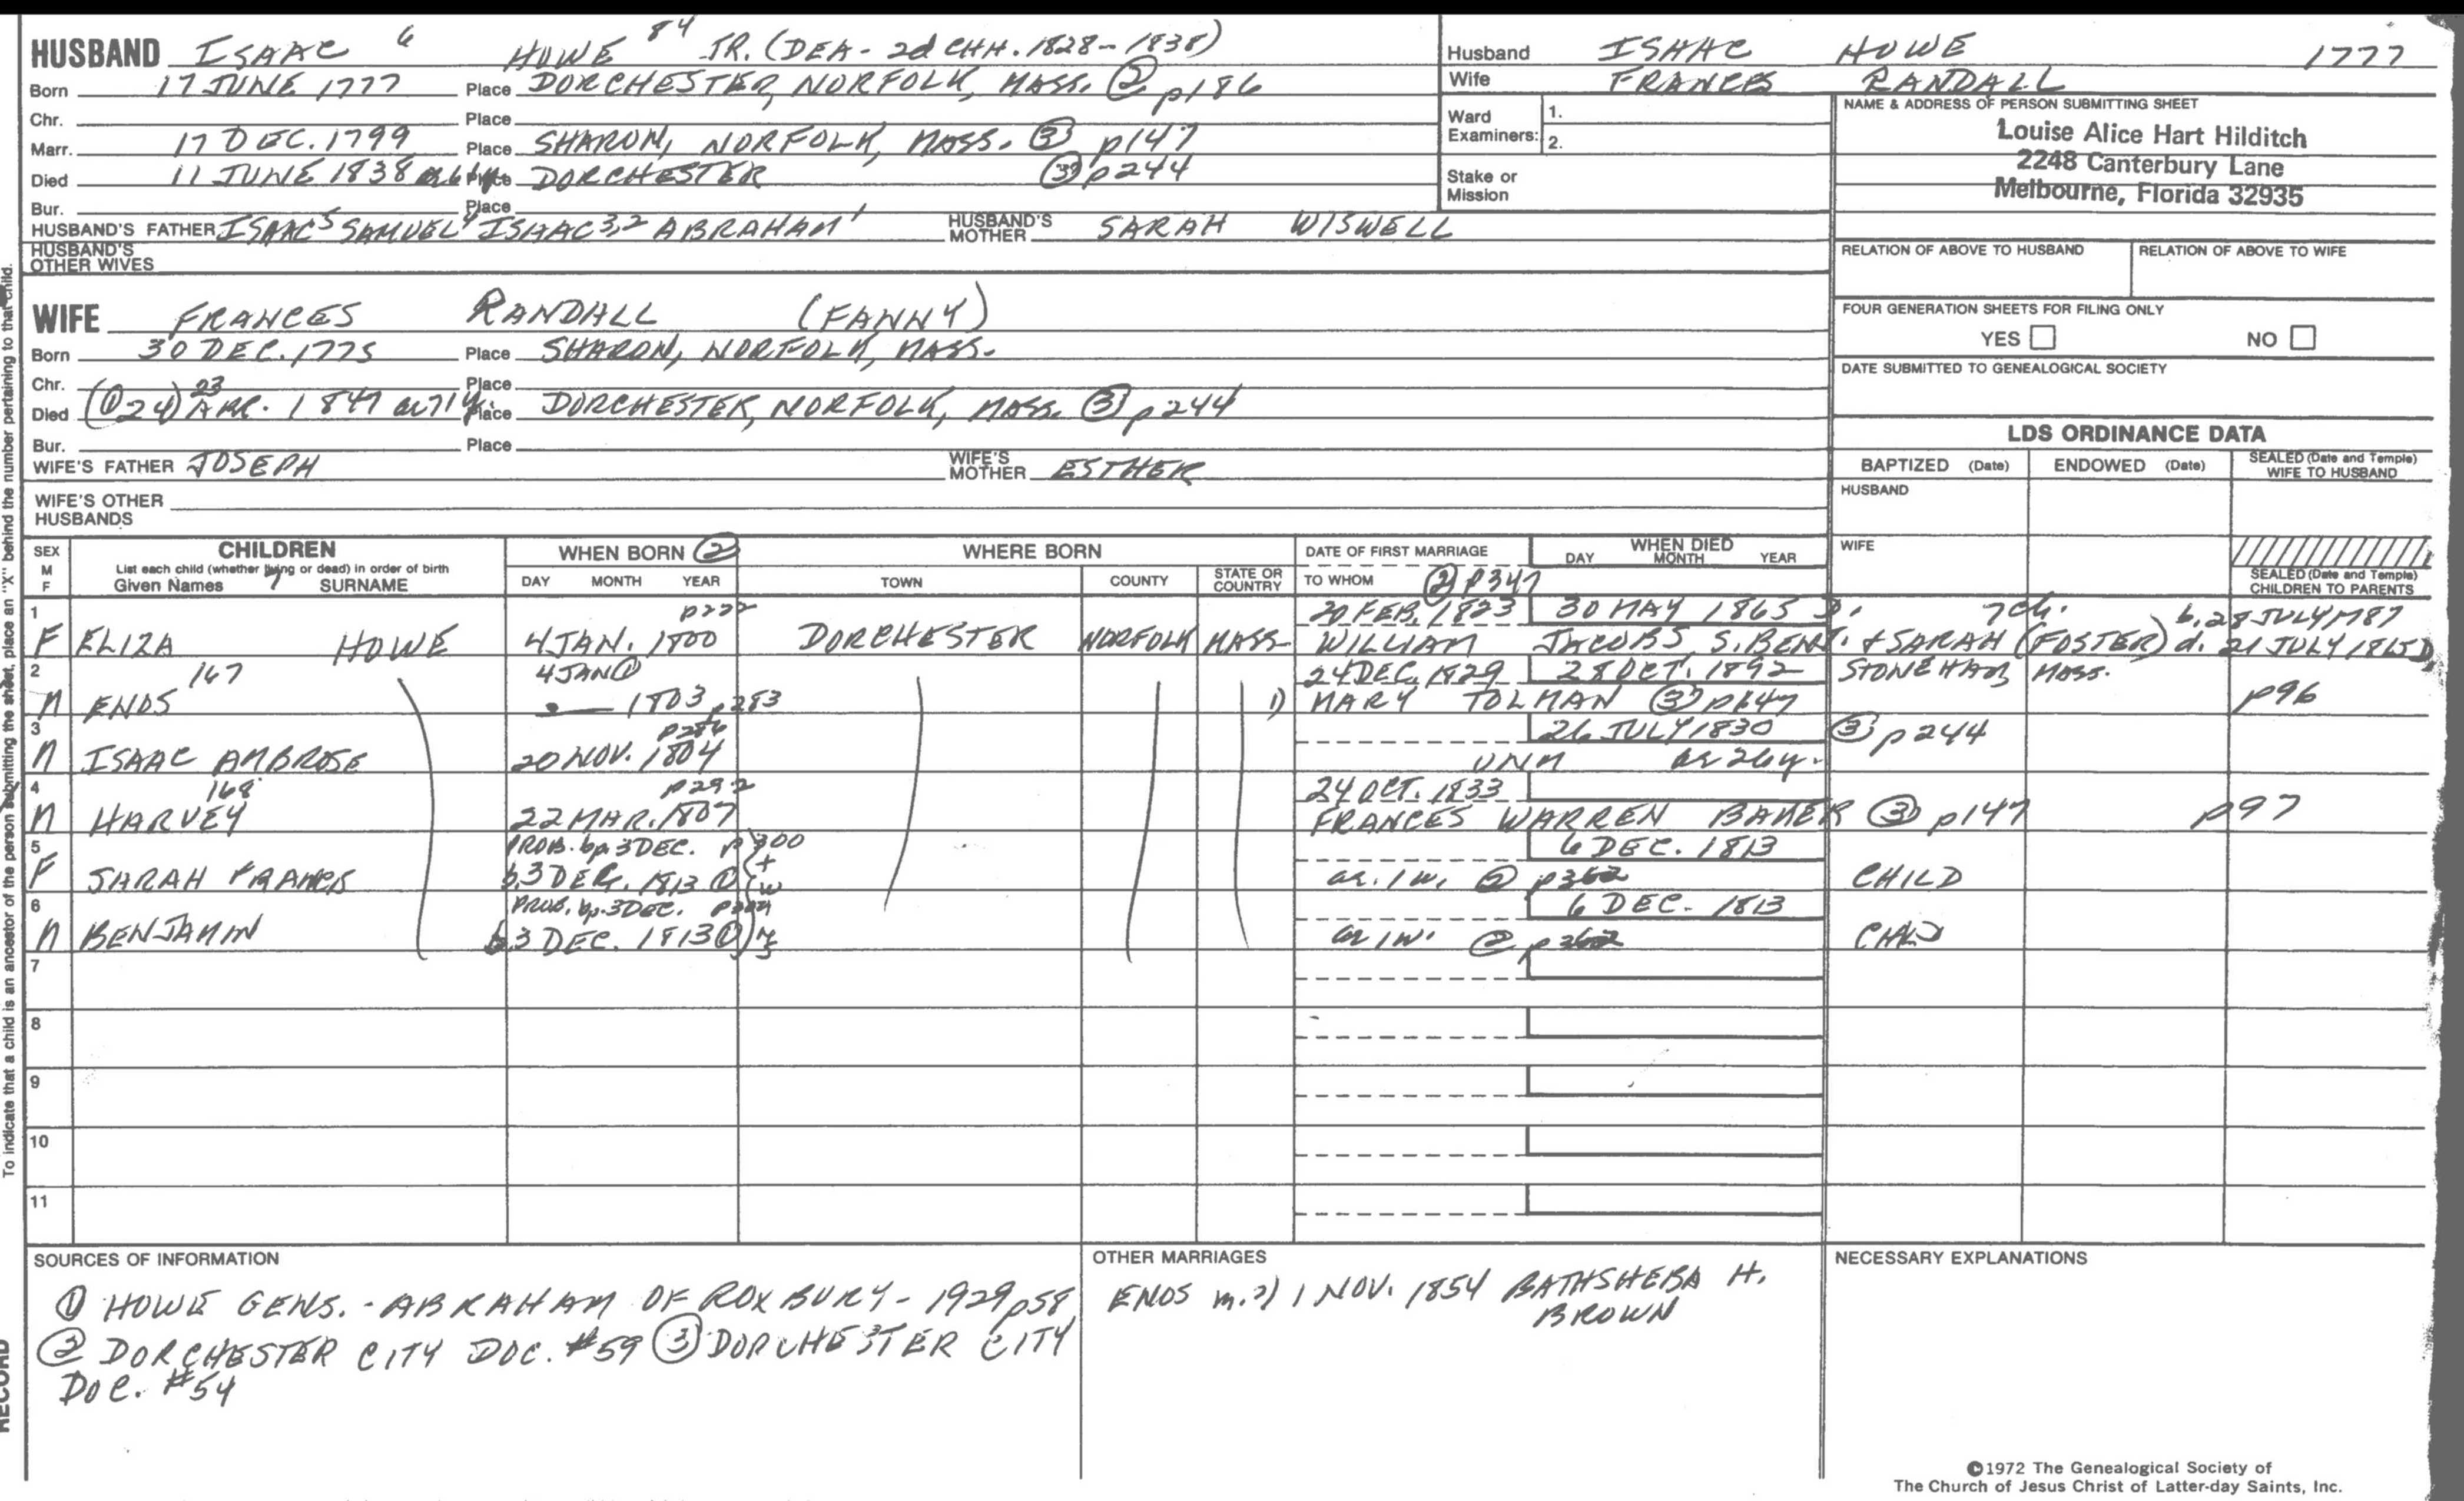 HUSBAND ISAAC 6 HOWE 84 JR. (DEA - 2d CHH. 1828-1838)
Born 17 JUNE 1777 Place DORCHESTER, NORFOLK, MASS. ② p186
Chr. Place
Marr. 17 DEC. 1799 Place SHARON, NORFOLK, MASS. ③ p147
Died 11 JUNE 1838 Place DORCHESTER ③ p244
Bur. Place
HUSBAND'S FATHER ISAAC5 SAMUEL4 ISAAC3,2 ABRAHAM1 HUSBAND'S MOTHER SARAH WISWELL
HUSBAND'S OTHER WIVES
Husband ISAAC HOWE 1777
Wife FRANCES RANDALL
Ward Examiners: 1.
2.
Stake or Mission
NAME & ADDRESS OF PERSON SUBMITTING SHEET
Louise Alice Hart Hilditch
2248 Canterbury Lane
Melbourne, Florida 32935
RELATION OF ABOVE TO HUSBAND RELATION OF ABOVE TO WIFE
FOUR GENERATION SHEETS FOR FILING ONLY
YES NO
DATE SUBMITTED TO GENEALOGICAL SOCIETY
WIFE FRANCES RANDALL (FANNY)
Born 30 DEC. 1775 Place SHARON, NORFOLK, MASS.
Chr. Place
Died (① 24) 23 APR. 1847 ae 71 y. Place DORCHESTER, NORFOLK, MASS. ③ p244
Bur. Place
WIFE'S FATHER JOSEPH WIFE'S MOTHER ESTHER
WIFE'S OTHER HUSBANDS
LDS ORDINANCE DATA
BAPTIZED (Date) ENDOWED (Date) SEALED (Date and Temple) WIFE TO HUSBAND
HUSBAND
WIFE
SEALED (Date and Temple) CHILDREN TO PARENTS
SEX M F
CHILDREN
List each child (whether living or dead) in order of birth
Given Names SURNAME
WHEN BORN ②
DAY MONTH YEAR
WHERE BORN
TOWN COUNTY STATE OR COUNTRY
DATE OF FIRST MARRIAGE
TO WHOM ② p347
WHEN DIED
DAY MONTH YEAR
1 p222 20 FEB. 1823 30 MAY 1865 D. 7 ch. b. 28 JULY 1787
F ELIZA HOWE 4 JAN. 1800 DORCHESTER NORFOLK MASS WILLIAM JACOBS, S. BENJ. + SARAH (FOSTER) d. 21 JULY 1865 D
2 167 4 JAN ① 24 DEC. 1829 28 OCT. 1892 STONEHAM, MASS.
M ENOS 1803 p283 1) MARY TOLMAN ③ p147 p96
3 p286 26 JULY 1830 ③ p244
M ISAAC AMBROSE 20 NOV. 1804 UNM ae 26 y.
4 168 p292 24 OCT. 1833
M HARVEY 22 MAR. 1807 FRANCES WARREN BAKER ③ p147 p97
5 PROB. bp 3 DEC. p300 6 DEC. 1813
F SARAH FRANCIS b. 3 DEC. 1813 ① ae. 1 w. ② CHILD
6 PROB. bp. 3 DEC. 6 DEC. 1813
M BENJAMIN b 3 DEC. 1813 ① ae 1 w. ② CHILD
7
8
9
10
11
SOURCES OF INFORMATION
① HOWE GENS. - ABRAHAM OF ROXBURY - 1929 p58
② DORCHESTER CITY DOC. #59 ③ DORCHESTER CITY
DOC. #54
OTHER MARRIAGES
ENOS m. 2) 1 NOV. 1854 BATHSHEBA H.
BROWN
NECESSARY EXPLANATIONS
©1972 The Genealogical Society of
The Church of Jesus Christ of Latter-day Saints, Inc.
To indicate that a child is an ancestor of the person submitting the sheet, place an "X" behind the number pertaining to that child.
RECORD